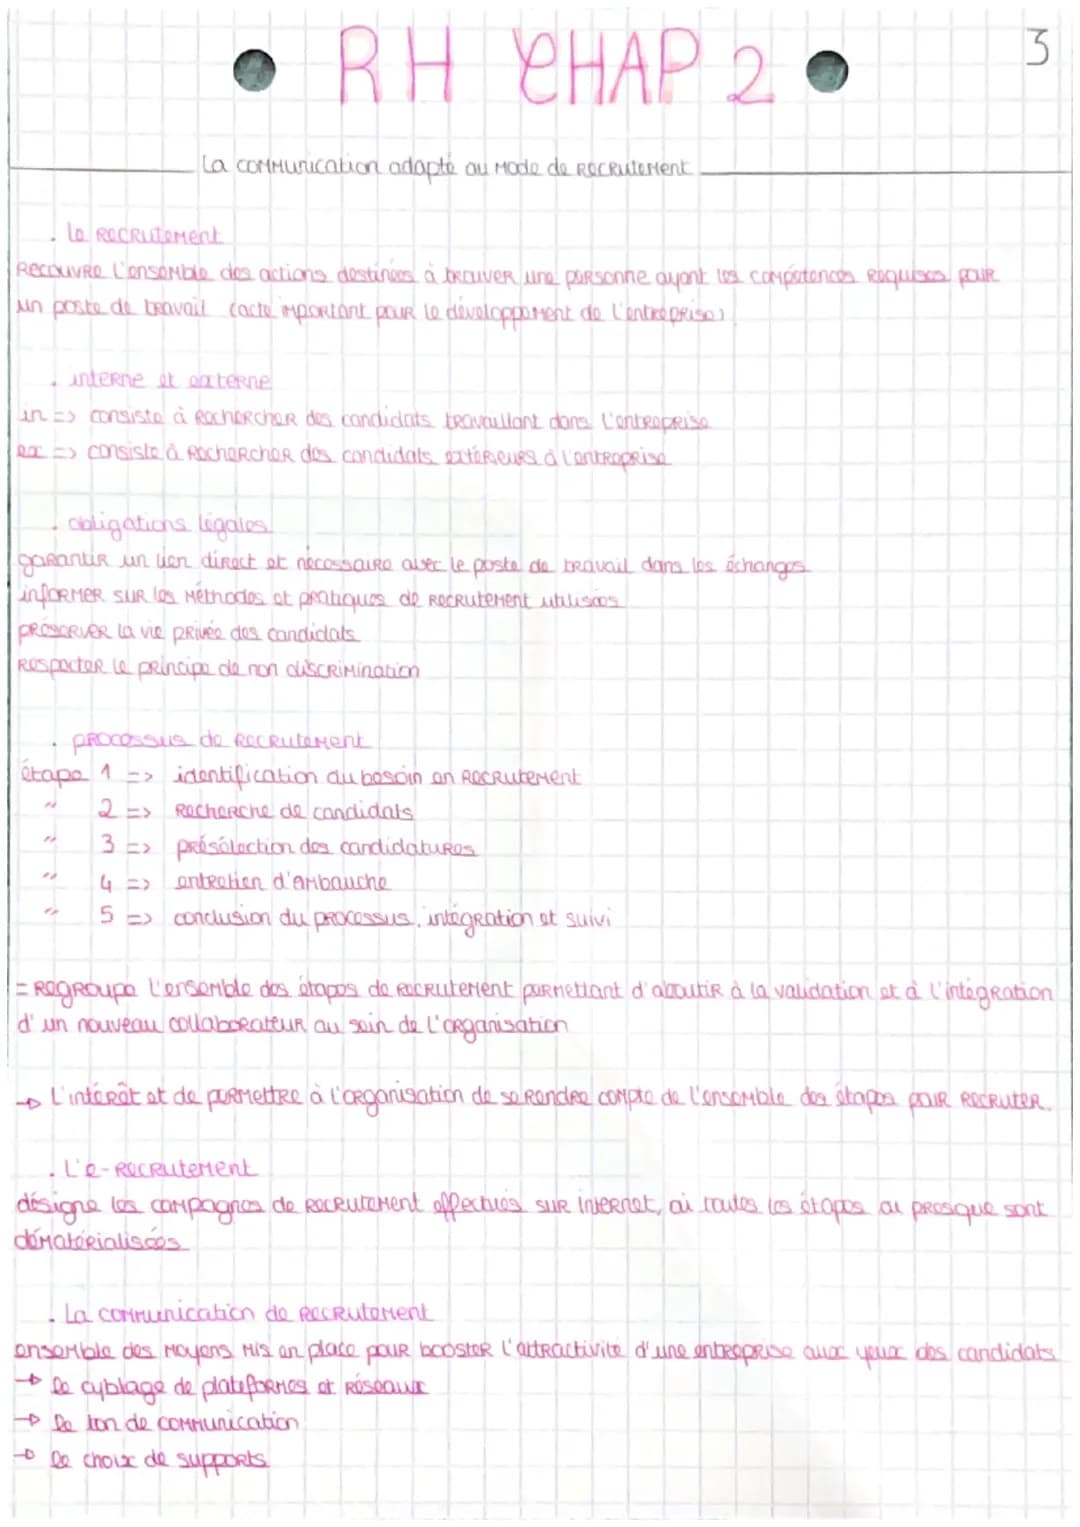 RH CHAP 2
3
La communication adapté au mode de recrutement
. le recrutement
Recouvre l'ensemble des actions destinées à trouver une personne ayant les compétences requises pour
un poste de travail (acte important pour le développement de l'entreprise)
. interne et externe
in => consiste à rechercher des candidats travaillant dans l'entreprise
ex => consiste à rechercher des candidats extérieurs à l'entreprise
. obligations légales
garantir un lien direct et nécessaire avec le poste de travail dans les échanges
informer sur les méthodes et pratiques de recrutement utilisées
préserver la vie privée des candidats
Respecter le principe de non discrimination
. processus de recrutement
étape 1 => identification du besoin en recrutement
" 2 => Recherche de candidats
" 3 => présélection des candidatures
" 4 => entretien d'embauche
" 5 => conclusion du processus, intégration et suivi
= Regroupe l'ensemble des étapes de recrutement permettant d'aboutir à la validation et à l'intégration
d'un nouveau collaborateur au sein de l'organisation
→ L'intérêt et de permettre à l'organisation de se rendre compte de l'ensemble des étapes pour recruter.
. L'e-recrutement
désigne les campagnes de recrutement effectués sur internet, où toutes les étapes ou presque sont
dématérialisées
. La communication de recrutement
ensemble des moyens mis en place pour booster l'attractivité d'une entreprise aux yeux des candidats
→ le cyblage de plateformes et réseaux
→ le ton de communication
→ le choix de supports